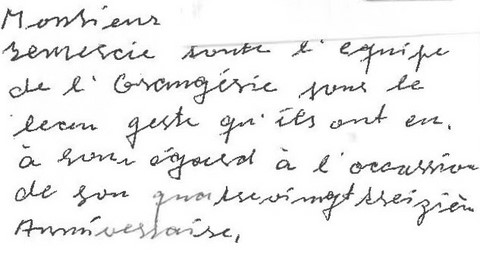 Monsieur
remercie toute l'équipe
de l'Orangerie pour le
beau geste qu'ils ont eu.
à son égard à l'occasion
de son quatrevingt treizièm
Anniversaire,